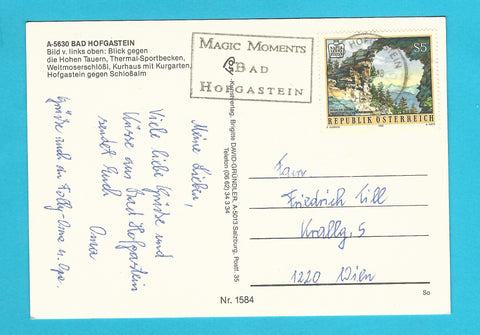 A-5630 BAD HOFGASTEIN
Bild v. links oben: Blick gegen
die Hohen Tauern, Thermal-Sportbecken,
Weltmoserschlößl, Kurhaus mit Kurgarten,
Hofgastein gegen Schloßalm
MAGIC MOMENTS
BAD
HOFGASTEIN
S5
REPUBLIK ÖSTERREICH
Meine Lieben,
Viele liebe Grüsse und
Küsse aus Bad Hofgastein
sendet Euch
Oma
Grüsse auch an Polly-Oma u. Opa.
Kunstverlag, Brigitte DAVID-GRÜNDLER, A-5013 Salzburg, Postf. 35
Telefon (06 62) 34 3 34
Fam
Friedrich Till
Krallg. 5
1220 Wien
Nr. 1584
So